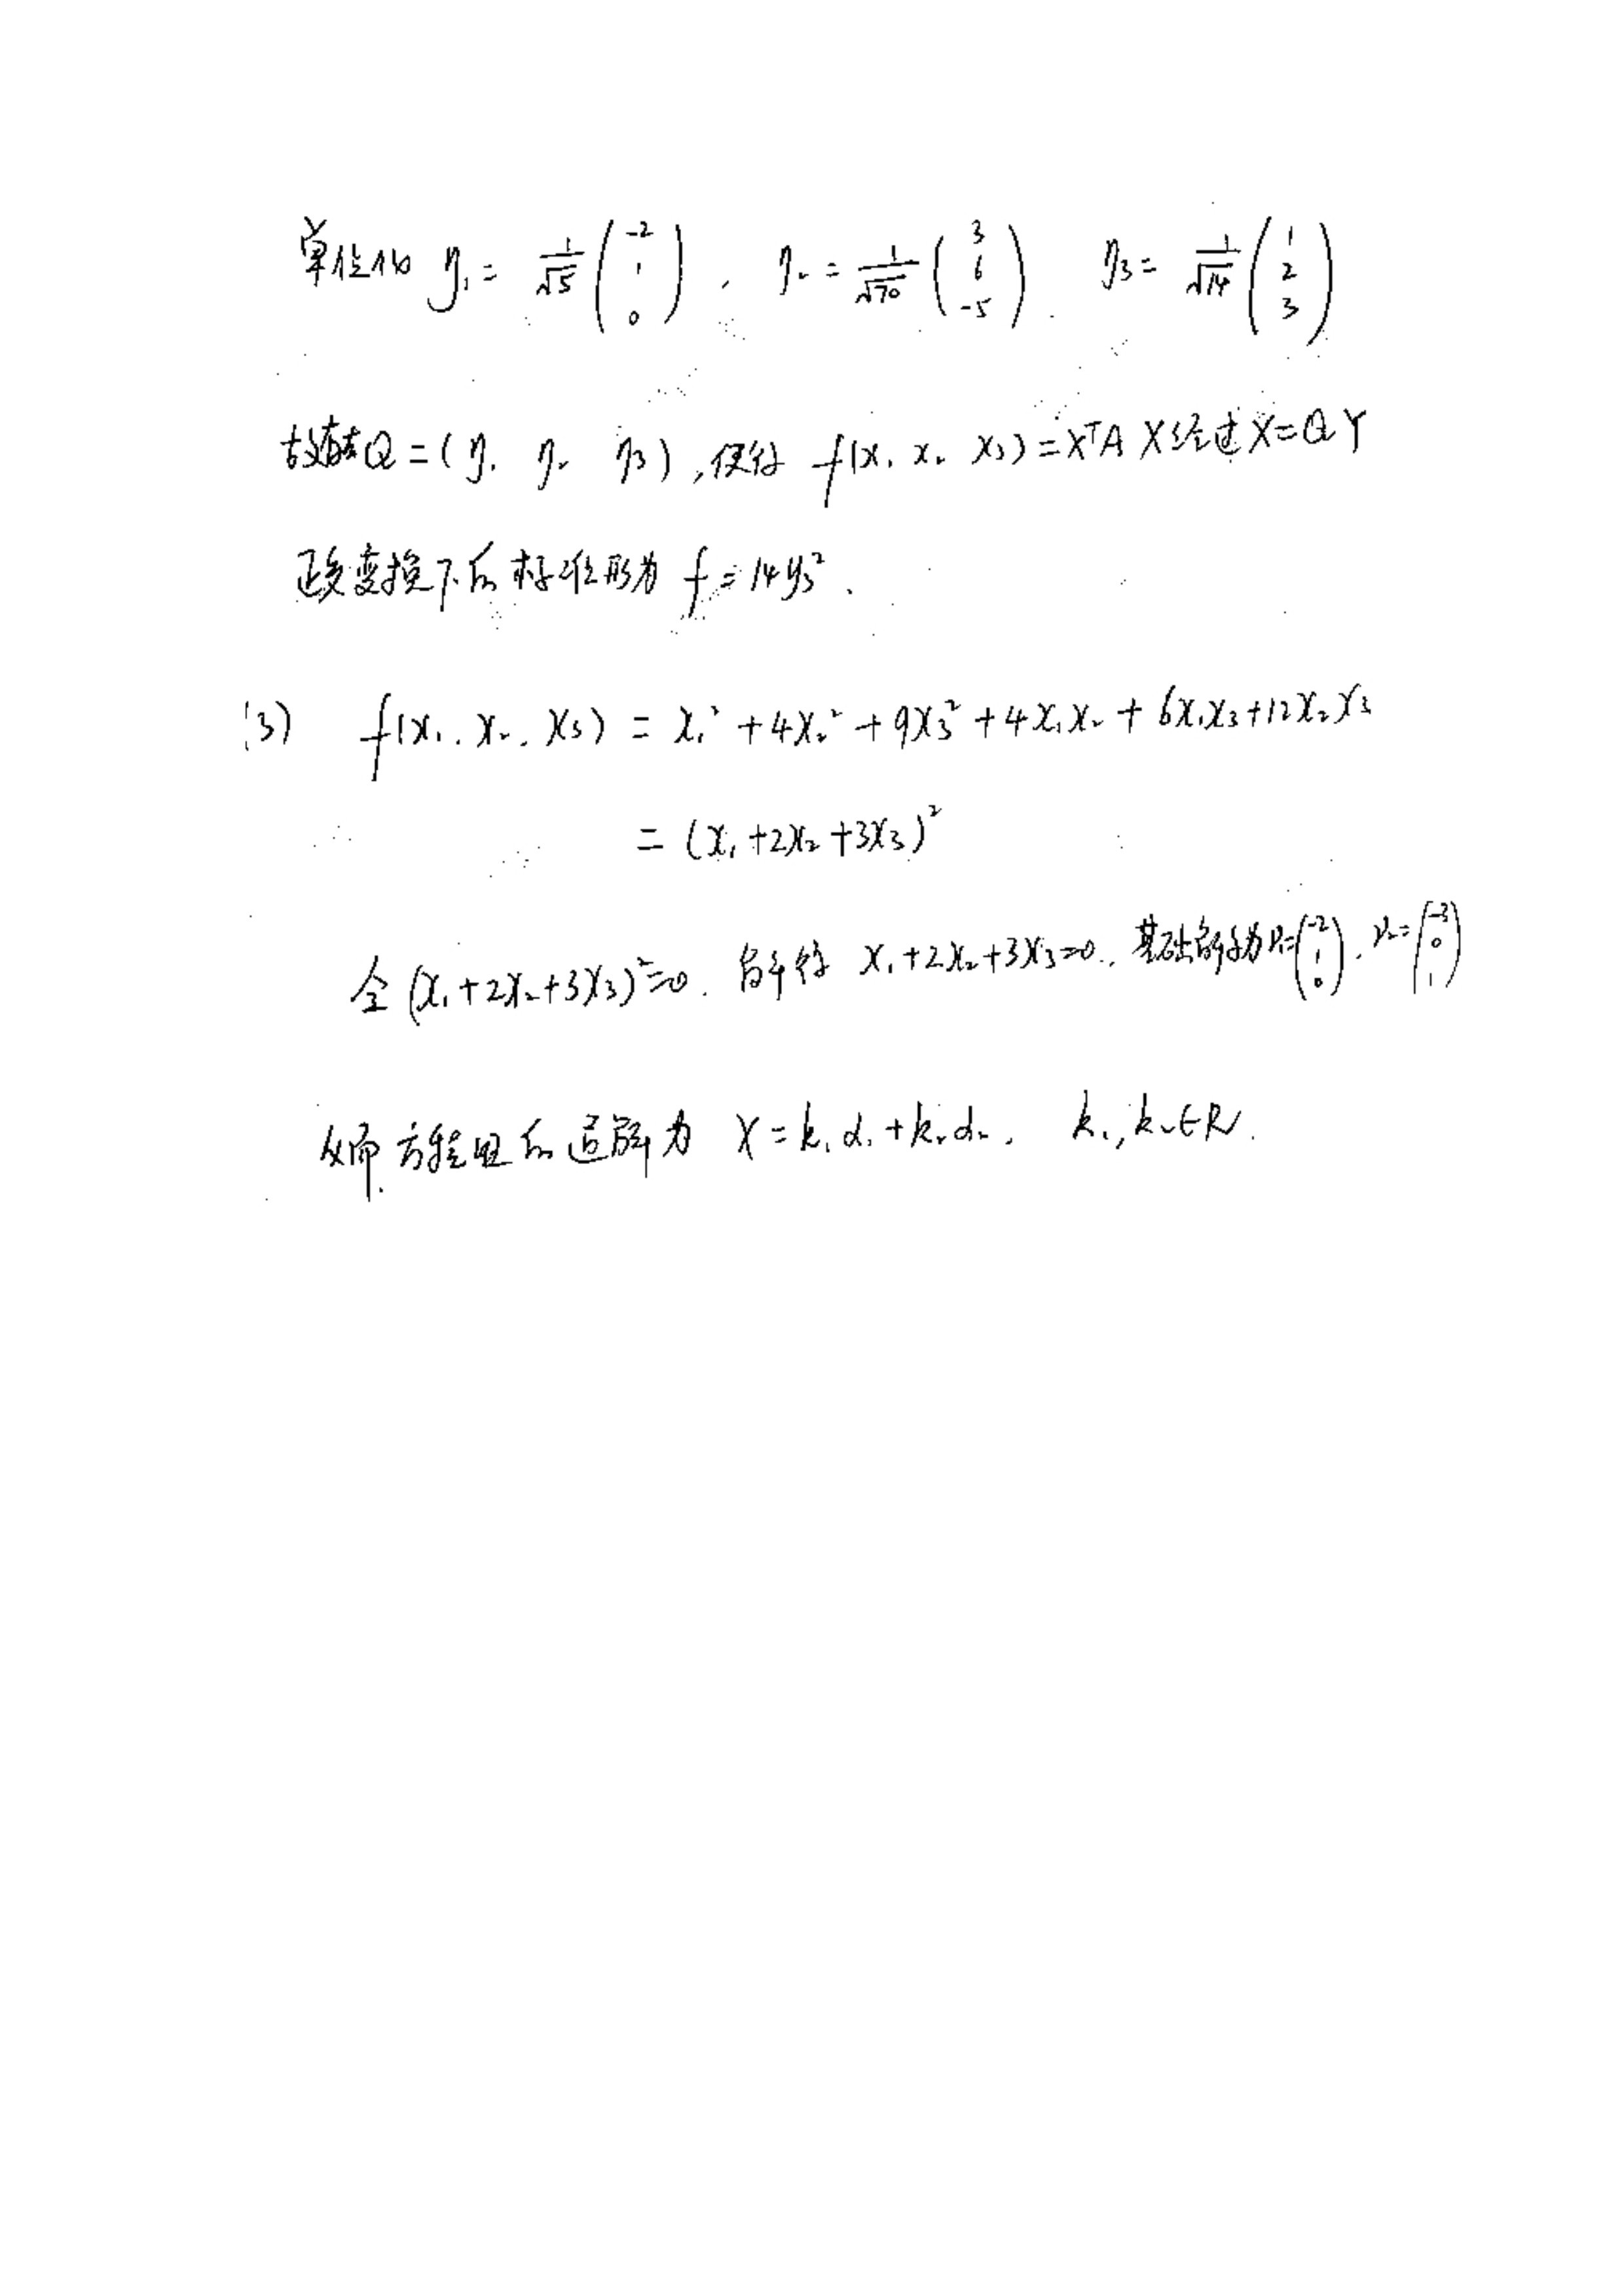 单位化 η₁ = 1/√5 (-2 1 0), η₂ = 1/√70 (3 6 -5). η₃ = 1/√14 (1 2 3)
故存在 Q = (η₁ η₂ η₃), 使得 f(x₁ x₂ x₃) = XᵀAX 经过 X=QY
正交变换下的标准形为 f = 14y₃².
(3) f(x₁, x₂, x₃) = x₁² + 4x₂² + 9x₃² + 4x₁x₂ + 6x₁x₃ + 12x₂x₃
= (x₁ + 2x₂ + 3x₃)²
令 (x₁ + 2x₂ + 3x₃)² = 0. 解得 x₁ + 2x₂ + 3x₃ = 0. 基础解系为 (-2 1 0), (-3 0 1)
从而方程组的通解为 X = k₁α₁ + k₂α₂, k₁, k₂ ∈ R.